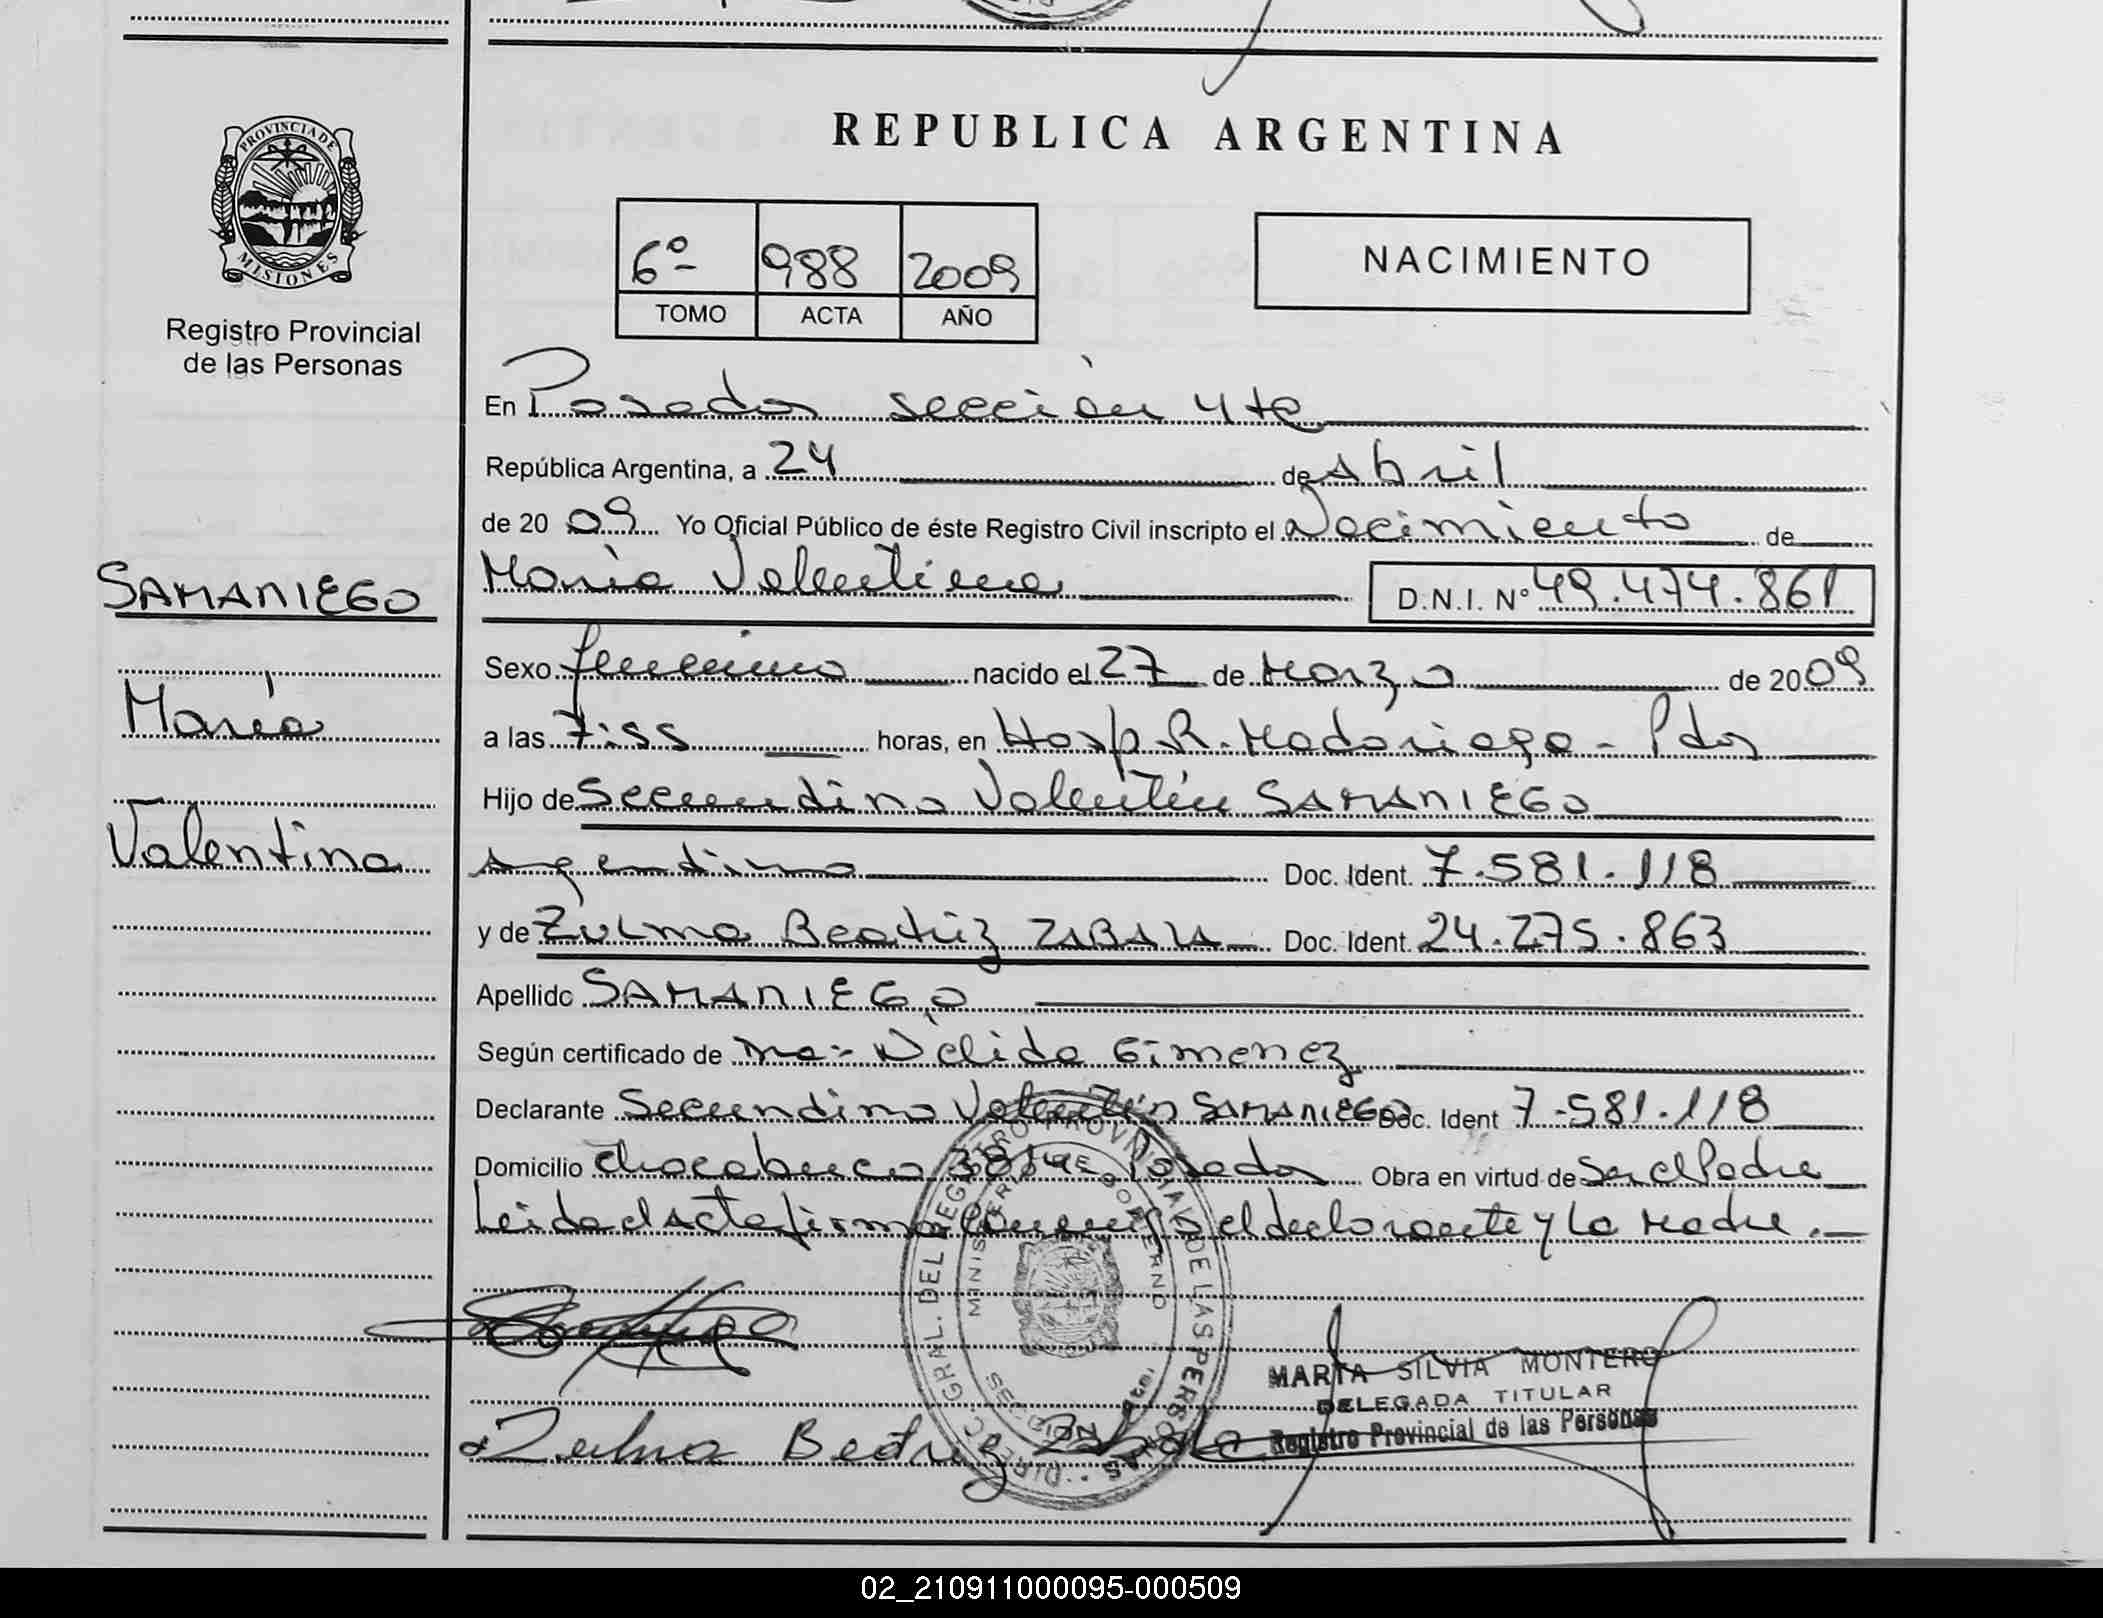 PROVINCIA DE
MISIONES
Registro Provincial
de las Personas
REPUBLICA ARGENTINA
6º 988 2009
TOMO ACTA AÑO
NACIMIENTO
En Posadas sección 4ta
República Argentina, a 24 de Abril
de 20 09 Yo Oficial Público de éste Registro Civil inscripto el Nacimiento de
SAMANIEGO
María Valentina D.N.I. Nº 49.474.861
Sexo femenino nacido el 27 de Marzo de 20 09
María
a las 7:55 horas, en Hosp. R. Madariaga - Pdas
Hijo de Secundino Valentín SAMANIEGO
Valentina
Argentino Doc. Ident. 7.581.118
y de Zulma Beatriz ZABALA Doc. Ident. 24.275.863
Apellido SAMANIEGO
Según certificado de Nélida Gimenez
Declarante Secundino Valentín SAMANIEGO Doc. Ident 7.581.118
Domicilio Chacabuco Posadas Obra en virtud de Ser el Padre
Leida el Acta firman conmigo el declarante y la Madre.
DIREC. GRAL. DEL REGISTRO PROVINCIAL DE LAS PERSONAS
MINISTERIO DE GOBIERNO
MISIONES
MARTA SILVIA MONTERO
DELEGADA TITULAR
Registro Provincial de las Personas
Zulma Beatriz Zabala
02_210911000095-000509